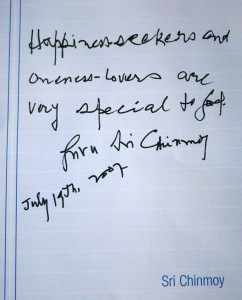 Happiness-seekers and
oneness-lovers are
very special to God.
Sri Chinmoy
July 19th, 2007
Sri Chinmoy